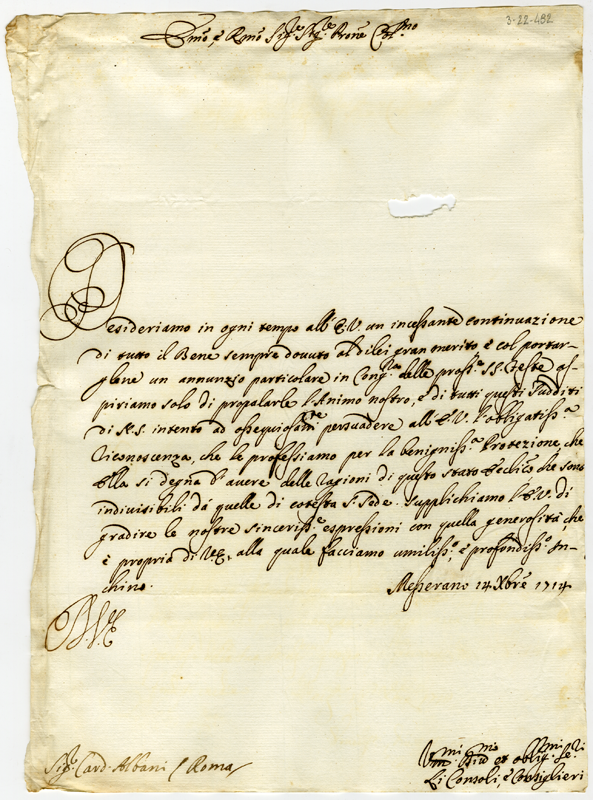 3-22-482
Em.o, e Rmo Sig.re Sig.re Prone Col.mo
Desideriamo in ogni tempo all' E.V. un incessante continuazione
di tutto il Bene sempre douuto al dilei gran merito e col portar-
glene un annunzio particolare in Cong.ra delle pross.e SS. Feste as-
piriamo solo di propalarle l'Animo nostro, e di tutti questi Sudditi
di N.S. intento ad ossequiosam.te persuadere all' E.V. l'obligatiss.a
riconoscenza, che le professiamo per la benigniss.a Protezione che
Ella si degna d'auere delle ragioni di questo stato Eccl.ico che sono
indiuisibili dà quelle di cotesta S. Sede. Supplichiamo l'E.V. di
gradire le nostre sinceriss.e espressioni con quella generosità che
è propria di V.E. alla quale facciamo umiliss.o, e profondiss.o In-
chino.
Messerano 14 Xbre 1714
D. V. E.
Sig.r Card. Albani / Roma /
Um.mi Diu.mi et oblig.mi Se.ri
Li Consoli, e Consiglieri